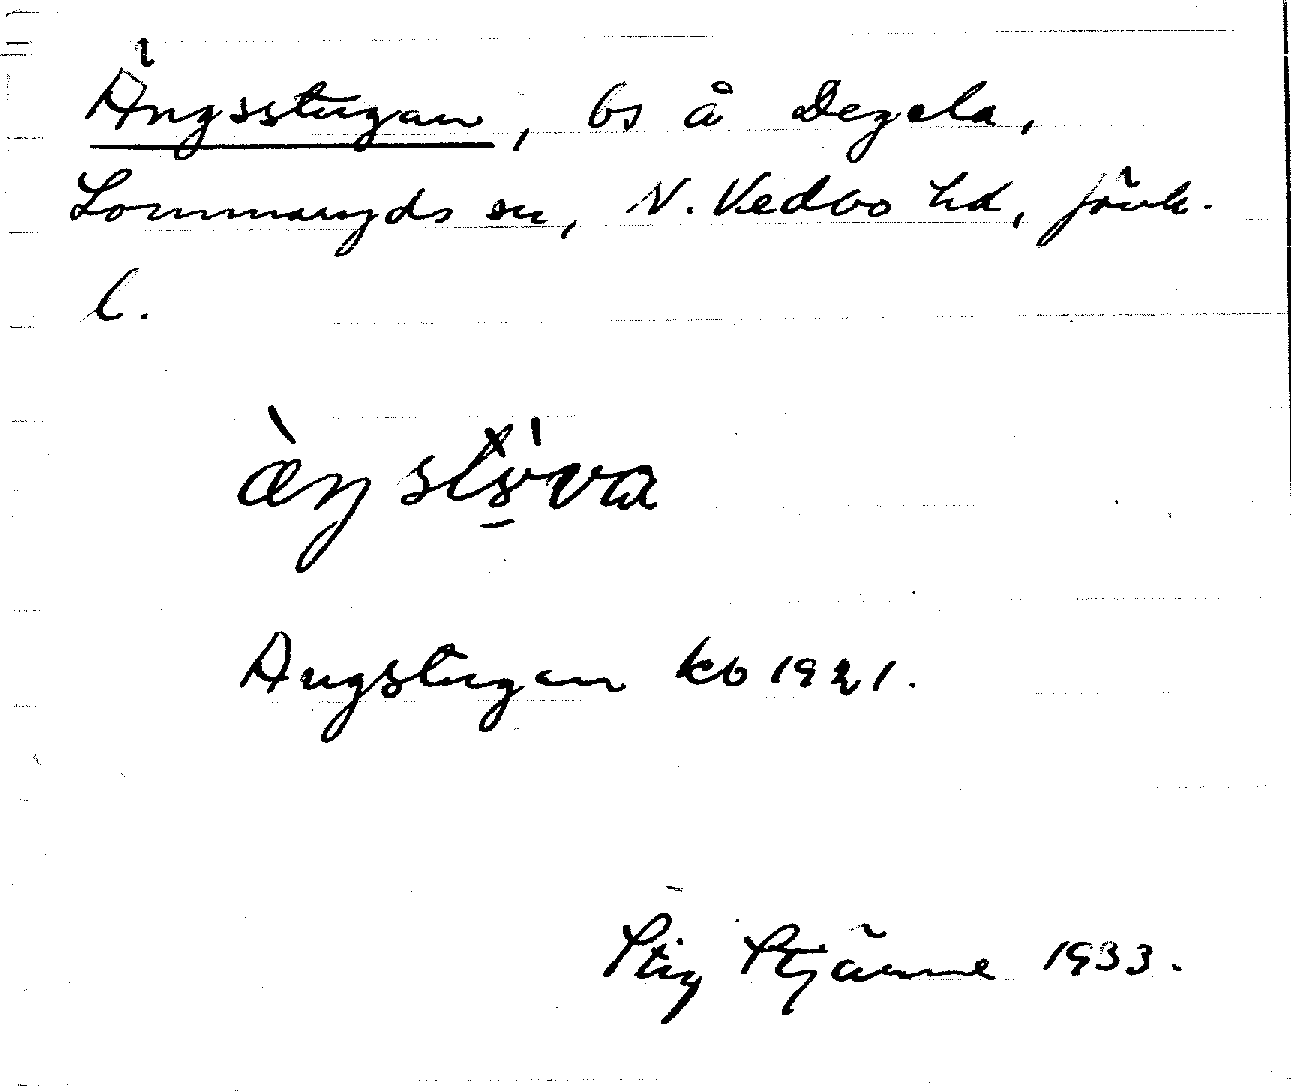 Ängsstugan, bs å Degela,
Lommaryds sn, N. Vedbo hd, Jönk.
l.
æ̀ŋstö̀va
Ängstugan kb 1921.
Stig Stjärne 1933.